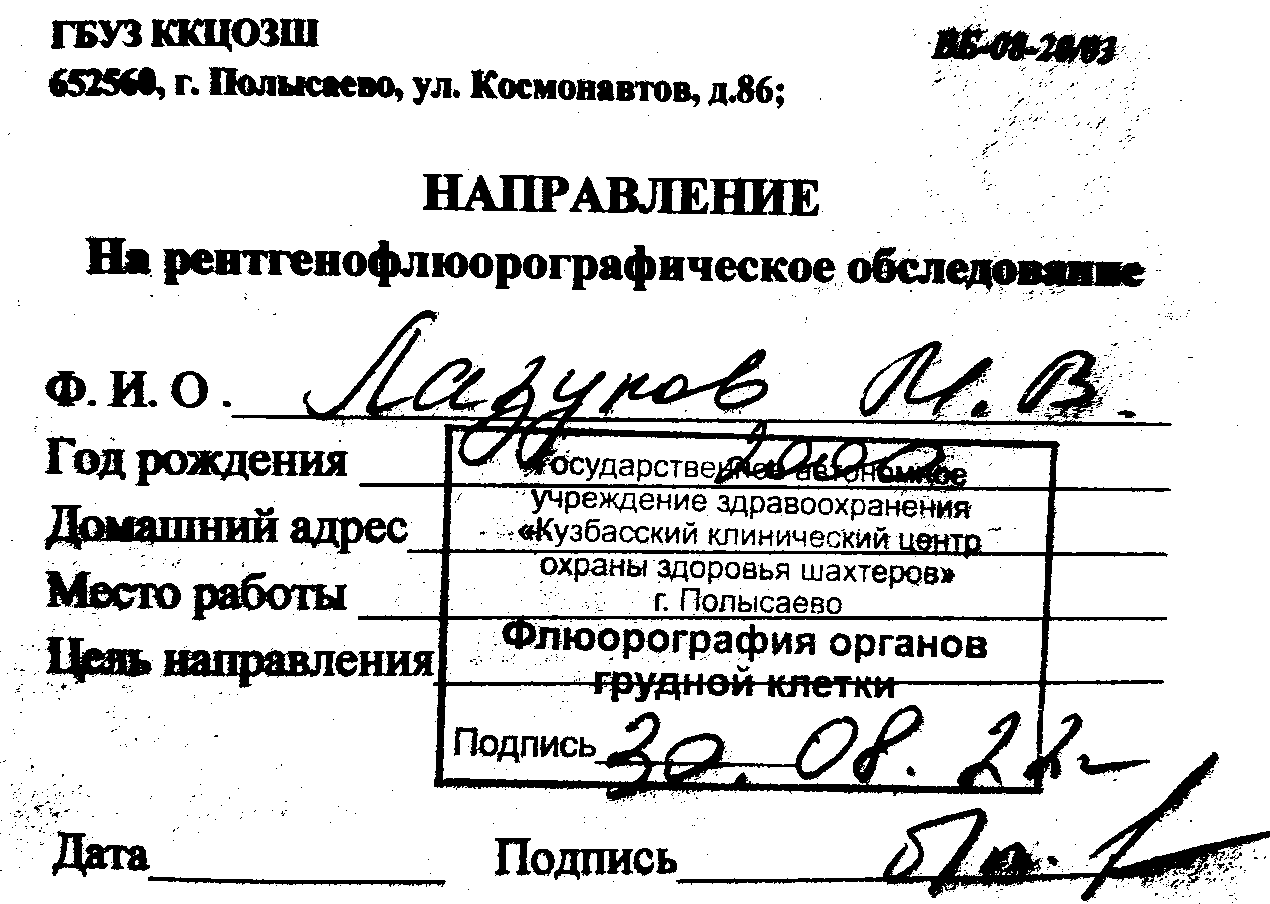 ГБУЗ ККЦОЗШ
ВБ-08-20/03
652560, г. Полысаево, ул. Космонавтов, д.86;
НАПРАВЛЕНИЕ
На рентгенофлюорографическое обследование
Ф. И. О. Лазуков М. В.
Год рождения 2000
Домашний адрес
Место работы
Цель направления
Государственное автономное
учреждение здравоохранения
«Кузбасский клинический центр
охраны здоровья шахтеров»
г. Полысаево
Флюорография органов
грудной клетки
Подпись 30.08.22
Дата Подпись